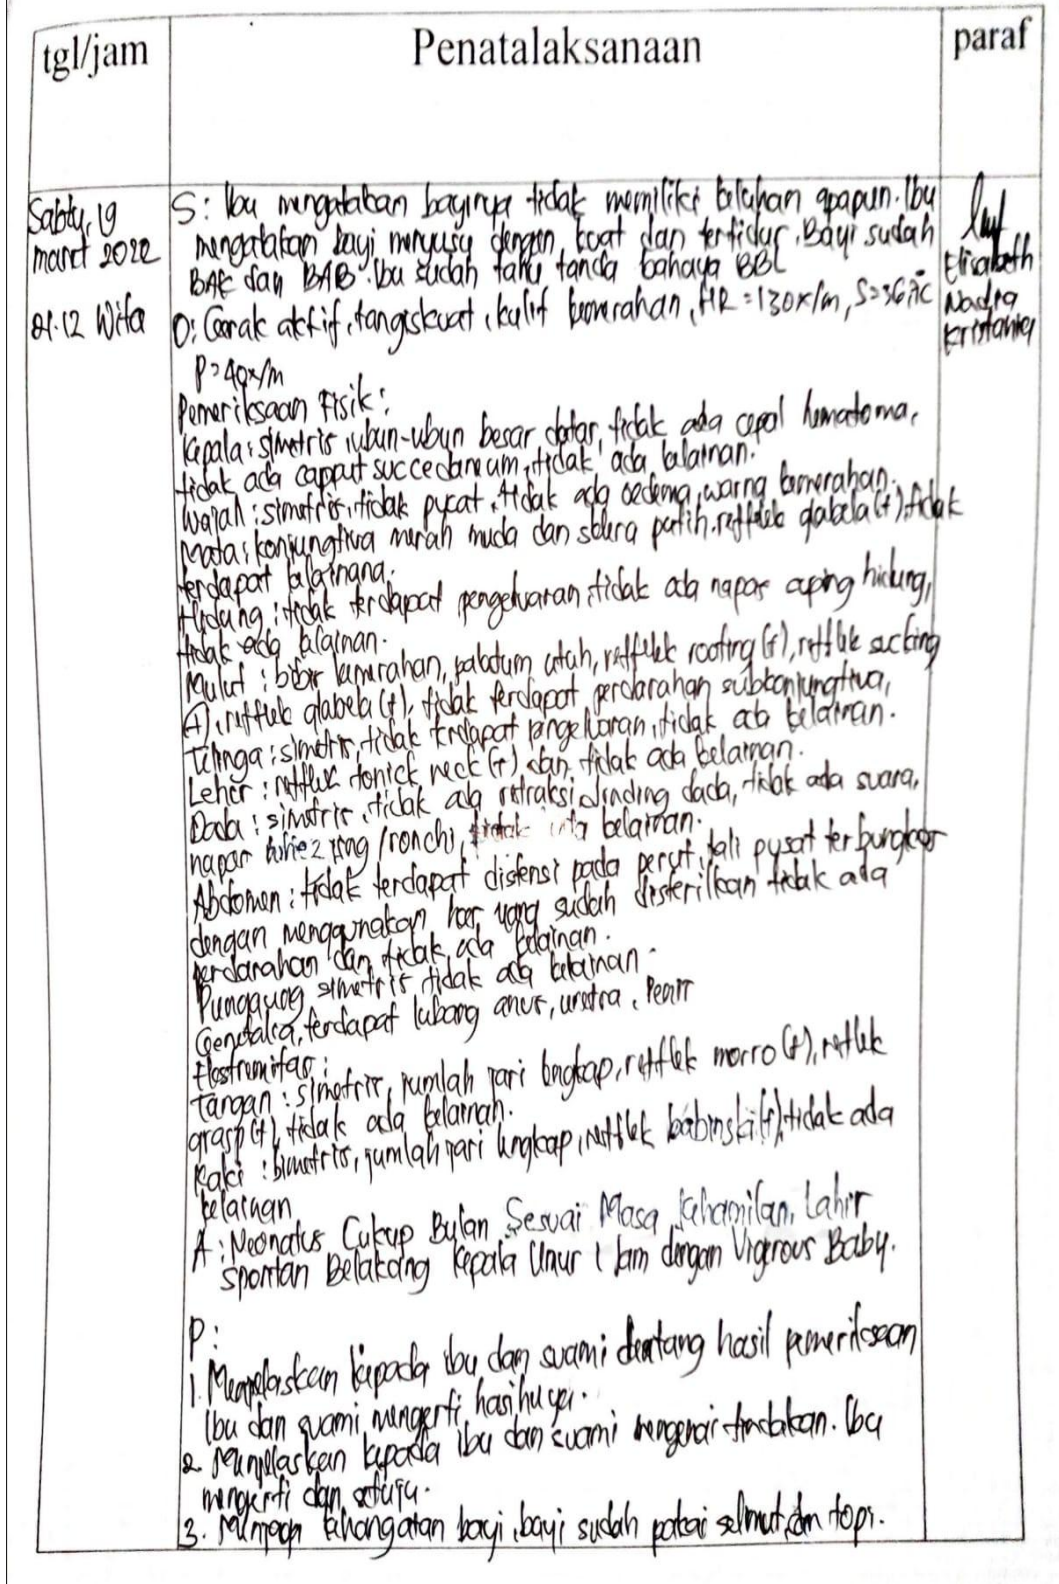 tgl/jam
Penatalaksanaan
paraf
Sabtu, 19
maret 2022
21.12 Wita
S: Ibu mengatakan bayinya tidak memiliki keluhan apapun. Ibu
mengatakan bayi menyusu dengan kuat dan tertidur. Bayi sudah
BAK dan BAB. Ibu sudah tahu tanda bahaya BBL
O: Gerak aktif, tangis kuat, kulit kemerahan, HR = 130x/m, S=36,7°C
P=40x/m
Elisabeth
Nadia
Kristania
Pemeriksaan Fisik:
Kepala: simetris, ubun-ubun besar datar, tidak ada cepal hematoma,
tidak ada capput succedaneum, tidak ada kelainan.
Wajah: simetris, tidak pucat, tidak ada oedema, warna kemerahan.
Mata: konjungtiva merah muda dan sklera putih, refflek glabela (+), tidak
terdapat kelainana.
Hidung: tidak terdapat pengeluaran, tidak ada napas cuping hidung,
tidak ada kelainan.
Mulut: bibir kemerahan, palatum utuh, refflek rooting (+), refflek sucking
(+), refflek glabela (+), tidak terdapat perdarahan subkonjungtiva,
Telinga: simetris, tidak terdapat pengeluaran, tidak ada kelainan.
Leher: refflek tonick neck (+) dan tidak ada kelainan.
Dada: simetris, tidak ada retraksi dinding dada, tidak ada suara,
napas wheezing/ronchi, tidak ada kelainan.
Abdomen: tidak terdapat distensi pada perut, tali pusat terbungkus
dengan menggunakan kas yang sudah disterilkan tidak ada
perdarahan dan tidak ada kelainan.
Punggung simetris tidak ada kelainan.
Genetalia, terdapat lubang anus, uretra, Penis
Ekstremitas:
Tangan: simetris, jumlah jari lengkap, refflek morro (+), reflek
grasp (+), tidak ada kelainan.
Kaki: simetris, jumlah jari lengkap, refflek babinski (+), tidak ada
kelainan
A: Neonatus Cukup Bulan Sesuai Masa Kehamilan, Lahir
spontan Belakang Kepala Umur 1 Jam dengan Vigerous Baby.
P:
1. Menjelaskan kepada ibu dan suami tentang hasil pemeriksaan
Ibu dan suami mengerti hasilnya.
2. Menjelaskan kepada ibu dan suami mengenai tindakan. Ibu
mengerti dan setuju.
3. Menjaga kehangatan bayi, bayi sudah pakai selimut dan topi.